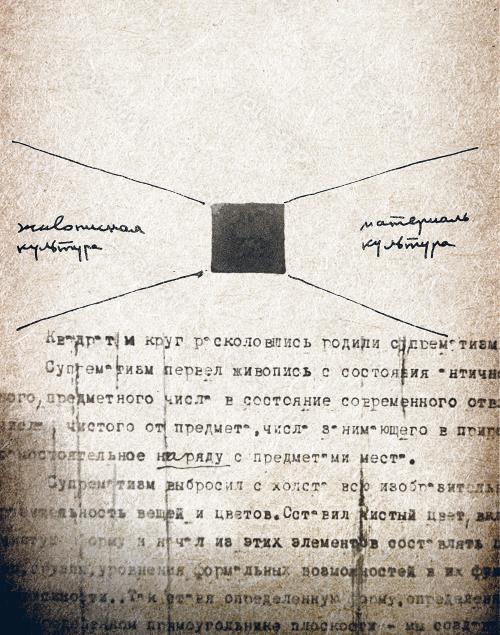 живописная
культура
материаль
культура
Квадрат и круг расколовшись родили супрематизм
Супрематизм перевел живопись с состояния антично
вого, предметного числа в состояние современного отв
числа чистого от предмета, числа занимающего в приро
самостоятельное наряду с предметами место.
Супрематизм выбросил с холста всю изобразительн
вещей и цветов. Оставил чистый цвет,
форму и начал из этих элементов составлять
уровнения формальных возможностей в их
Так ставя определенную форму, определенн
прямоугольнике плоскости - мы созда